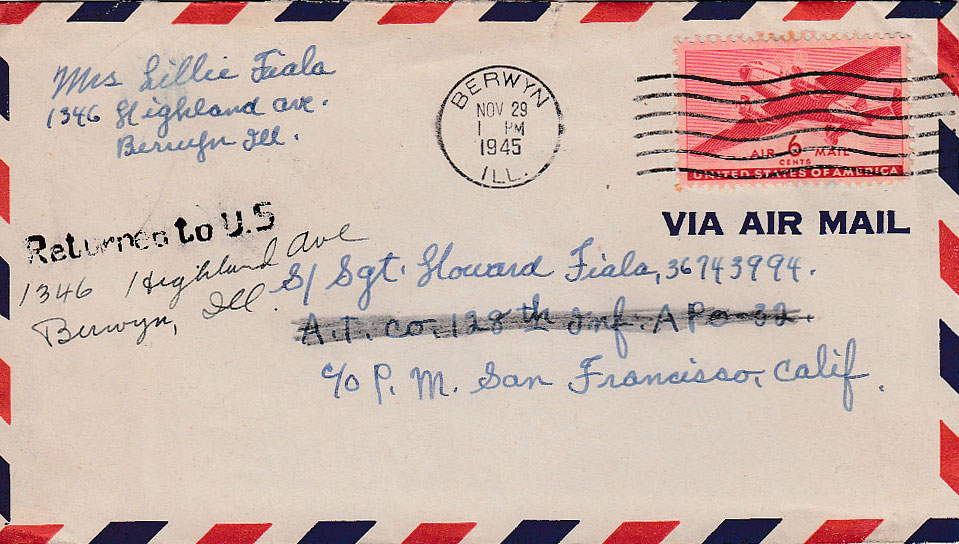 Mrs Lillie Fiala
1346 Highland ave.
Berwyn Ill.
BERWYN
NOV 29
1 PM
1945
ILL.
AIR 6 MAIL
CENTS
UNITED STATES OF AMERICA
VIA AIR MAIL
Returned to U.S
1346 Highland Ave
Berwyn, Ill.
S/Sgt. Howard Fiala, 36743994.
A.T. Co. 128th Inf. APO-32.
c/o P. M. San Francisco, Calif.